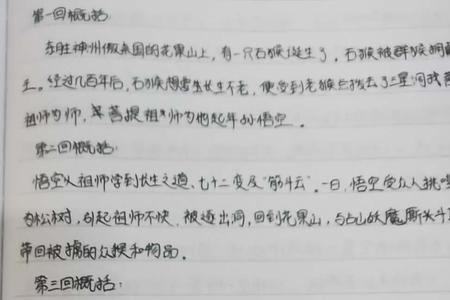 第一回概括:
东胜神州傲来国的花果山上,有一只石猴诞生了,石猴被群猴拥
王。经过几百年后,石猴想要长生不老,便受到老猴点拨去了三星洞找菩
祖师为师,菩提祖师为他起名叫悟空。
第二回概括:
悟空从祖师学到长生之道、七十二变及"筋斗云"。一日,悟空受众人挑
为松树,引起祖师不快,被逐出洞,回到花果山,与占山妖魔厮杀斗
带回被掳的众猴和物品。
第三回概括: